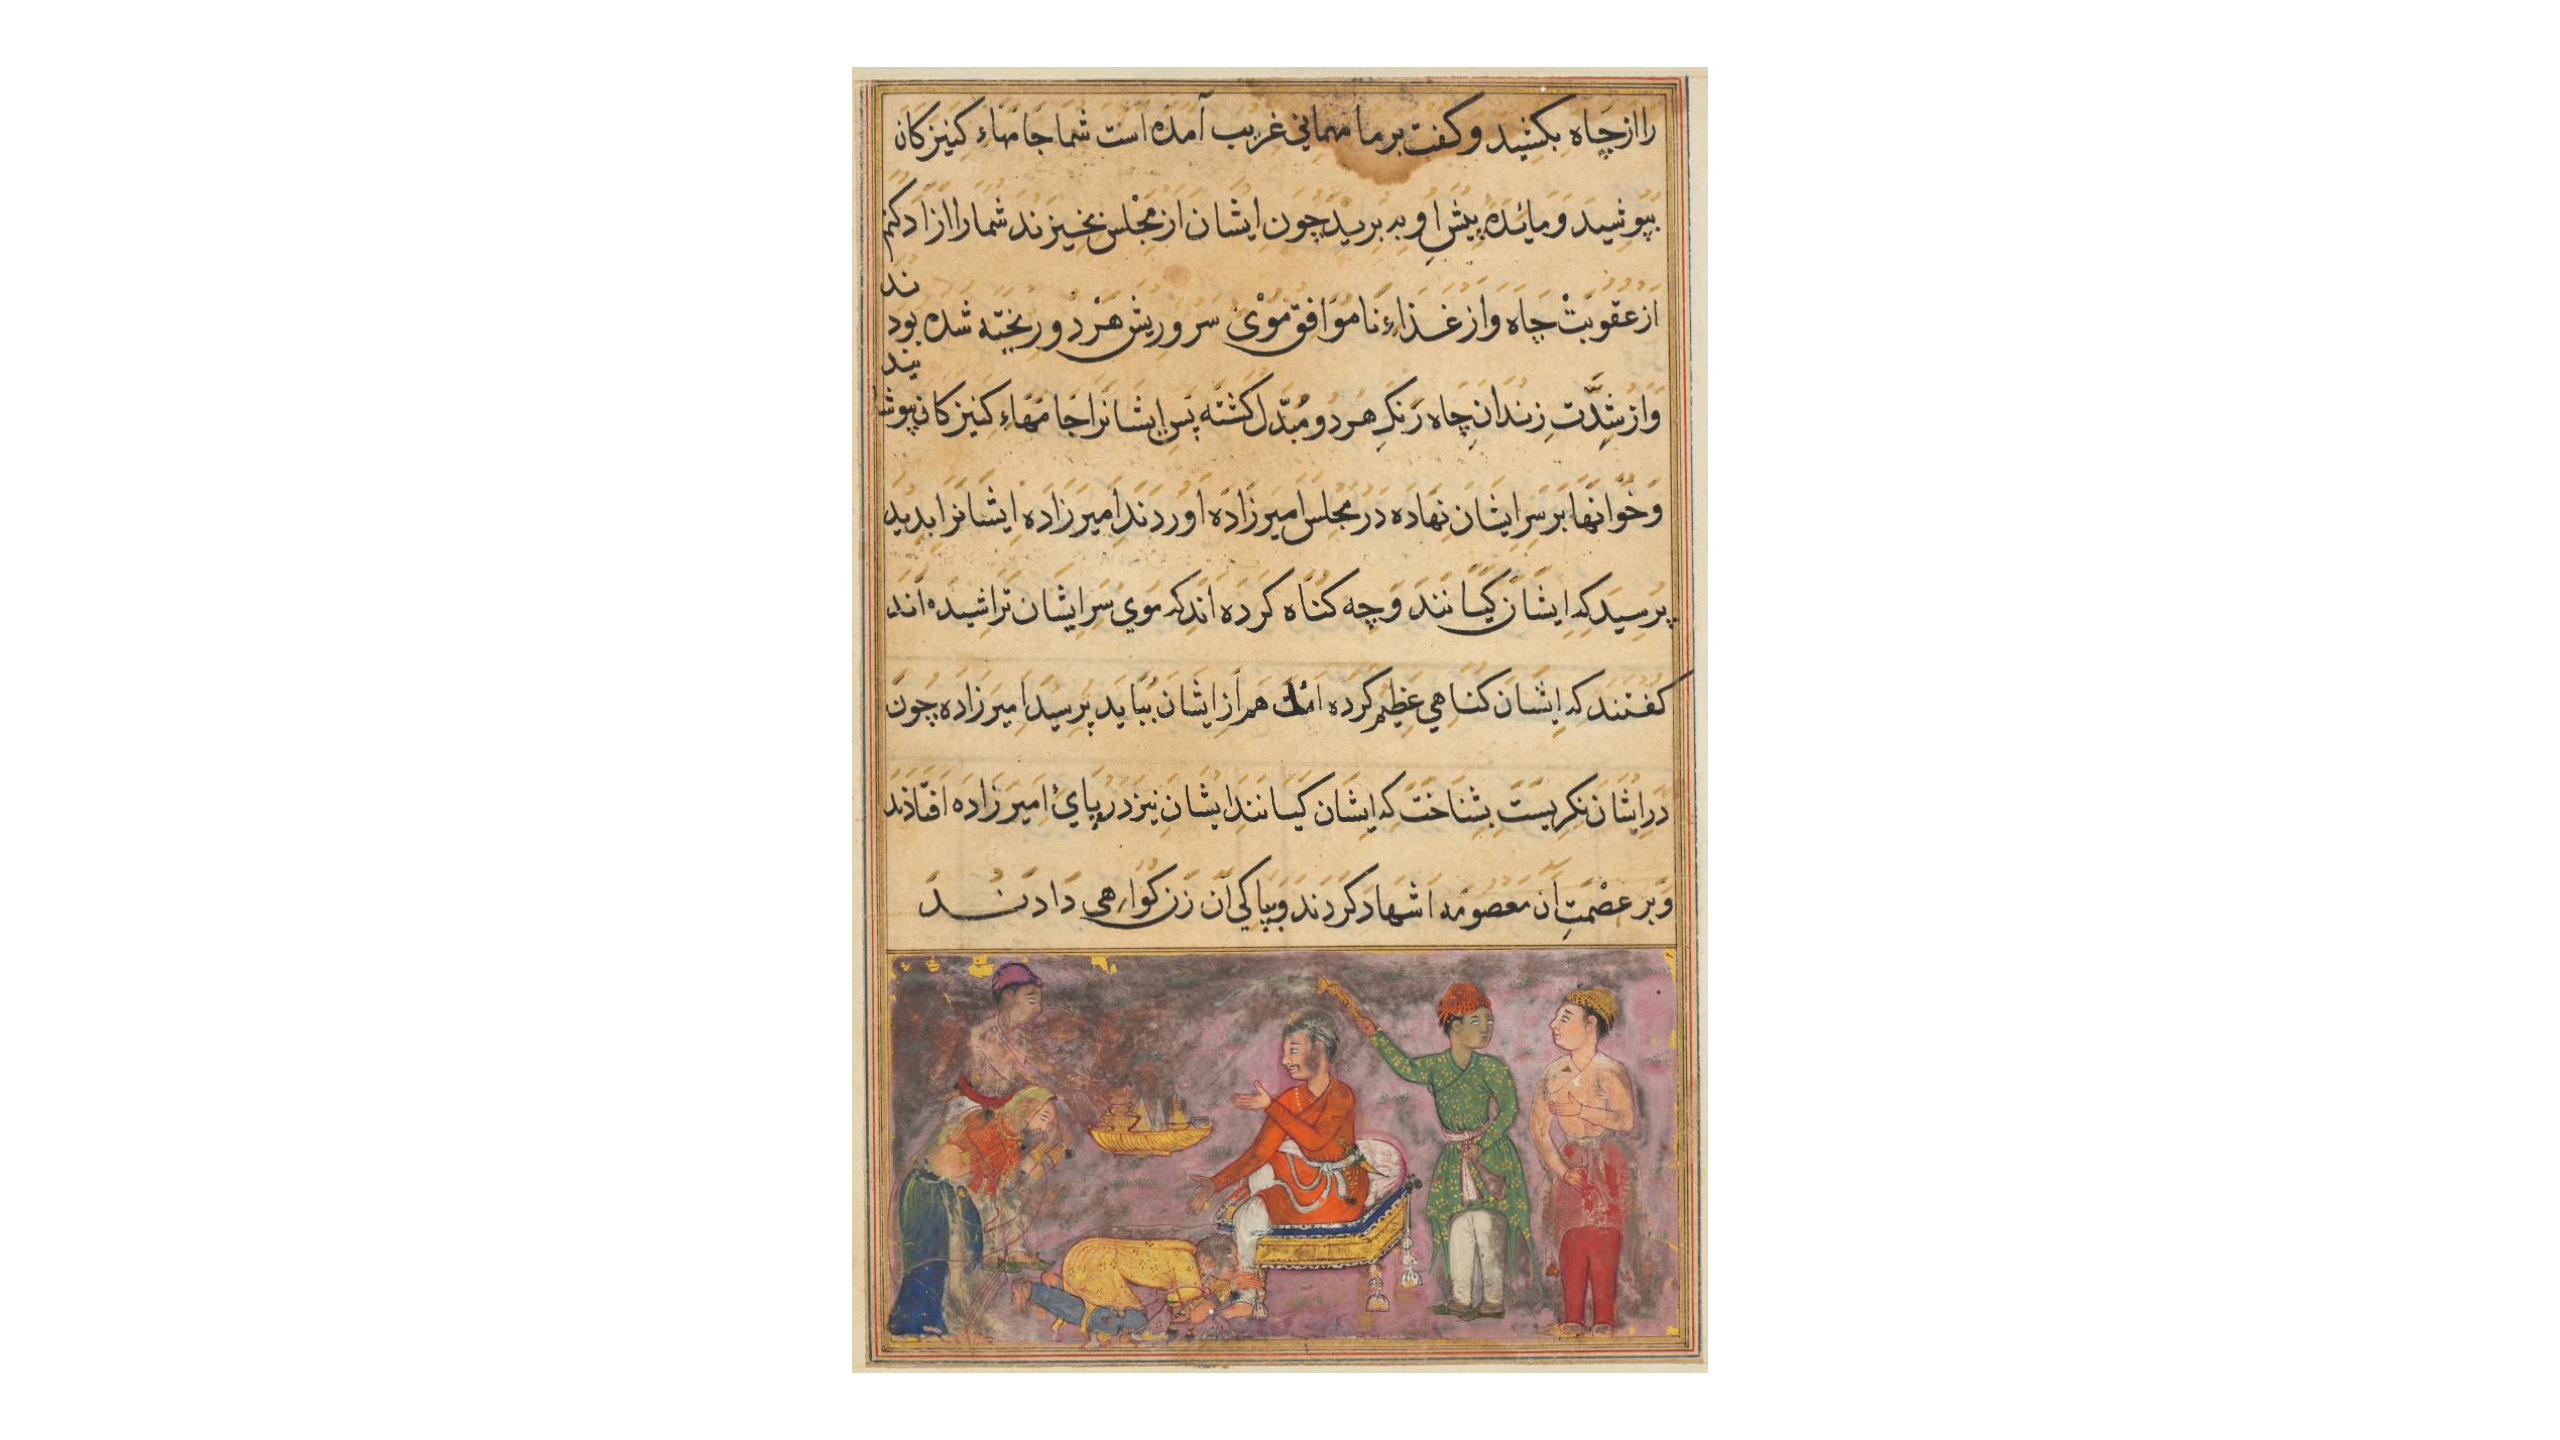 را از چاه بکشید و کفت بر ما مهمانی غریب آمده است شما جامهاء کنیزکان
بپوشید و مایٔده پیش او به برید چون ایشان از مجلس بخیزند شما را ازاد کنم
از عقوبت چاه و از غذاء ناموافق موی سر و ریش هر دو ریخته شده بود
ند
و از شدّت زندان چاه رنک هر دو مبدّل کشته پس ایشانرا جامهاء کنیزکان پوشا
نید
و خوانها بر سر ایشان نهاده در مجلس امیرزاده اوردند امیرزاده ایشانرا بدید
پرسید که ایشان کیانند و چه کناه کرده اند که موی سر ایشان تراشیده اند
کفتند که ایشان کناهی عظیم کرده هم از ایشان بباید پرسید امیرزاده چون
در ایشان نکریست بشناخت که ایشان کیانند ایشان نیز در پای امیرزاده افتادند
و بر عصمت آن معصومه اشهاد کردند و بپاکی آن زن کواهی دادند